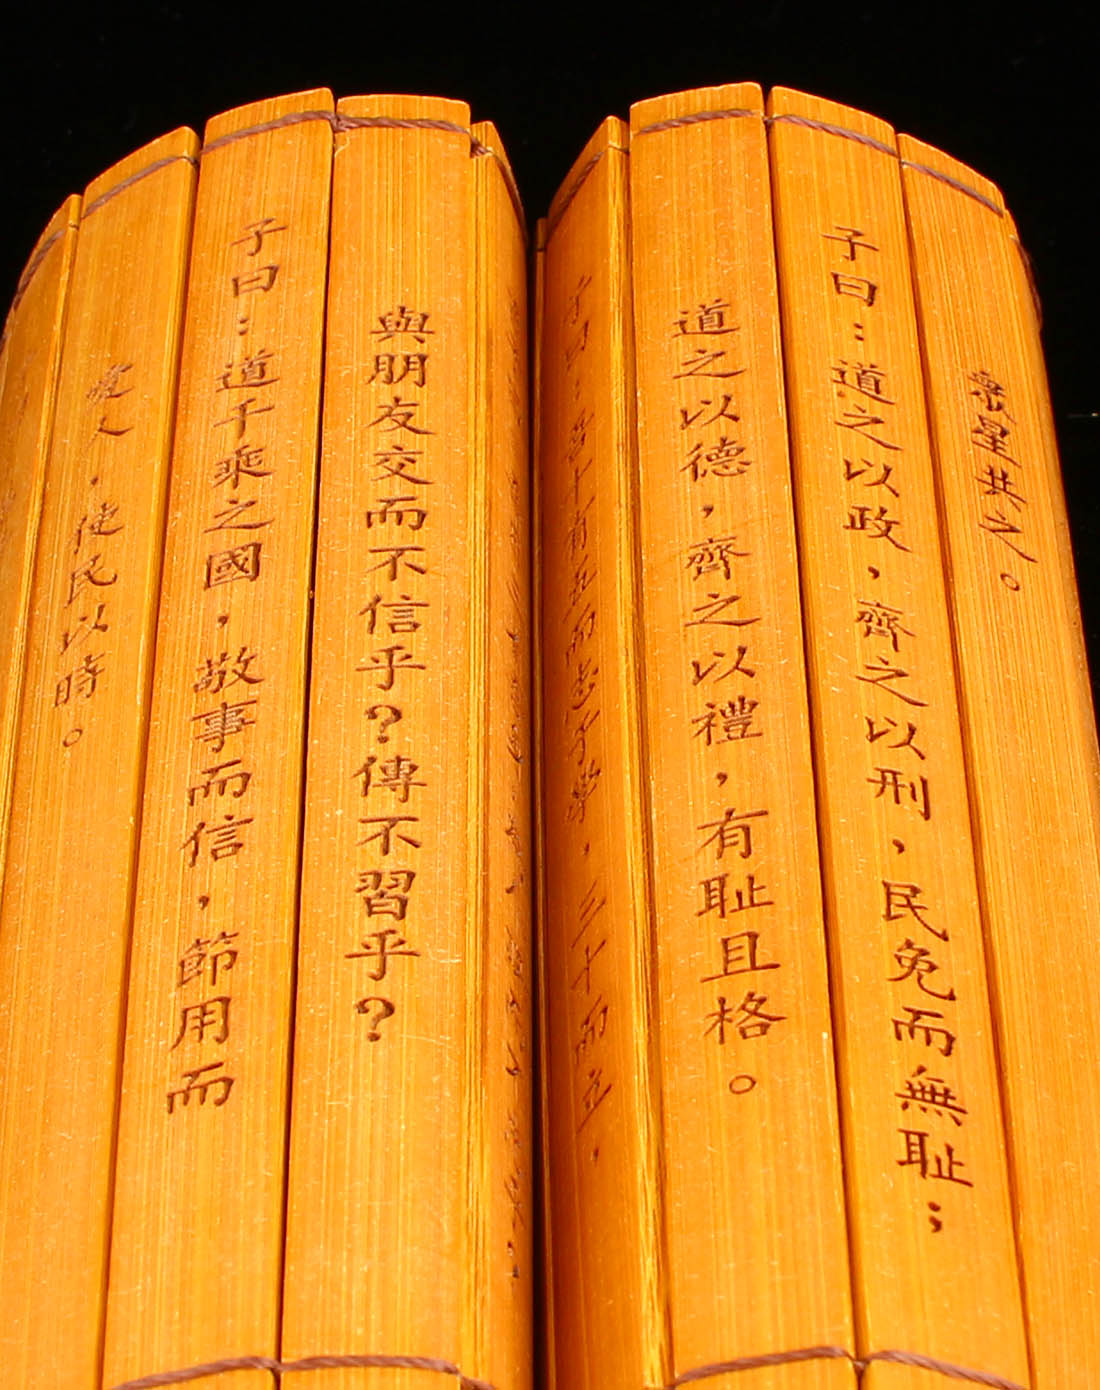 衆星共之。
子曰：道之以政，齊之以刑，民免而無耻；
道之以德，齊之以禮，有耻且格。
子曰：吾十有五而志于學，三十而立，
與朋友交而不信乎？傳不習乎？
子曰：道千乘之國，敬事而信，節用而
愛人，使民以時。